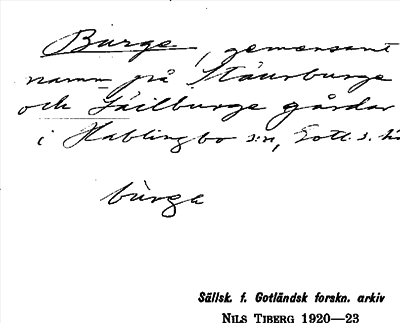 Burge, gemensamt
namn på Stäurburge
och Fäilburge gårdar
i Hablingbo s:n, Gotl. s. hd
bùrga
Sällsk. f. Gotländsk forskn. arkiv
NILS TIBERG 1920—23